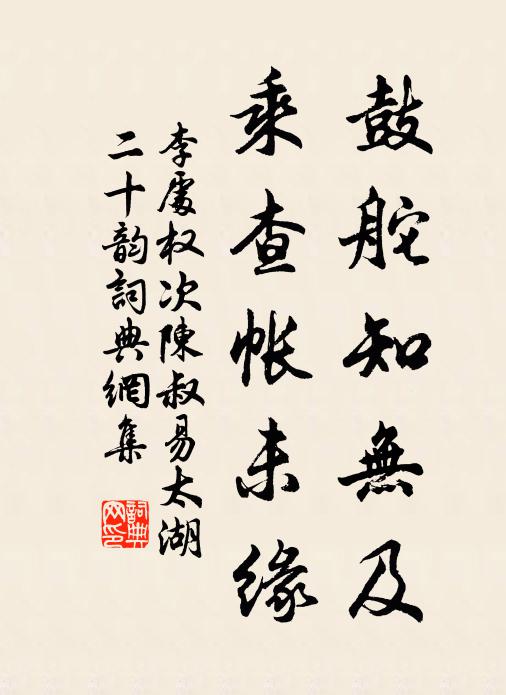 鼓舵知無及
乘查帐未緣
李處权次陳叔易太湖
二十韵詞典網集
詞典
网印